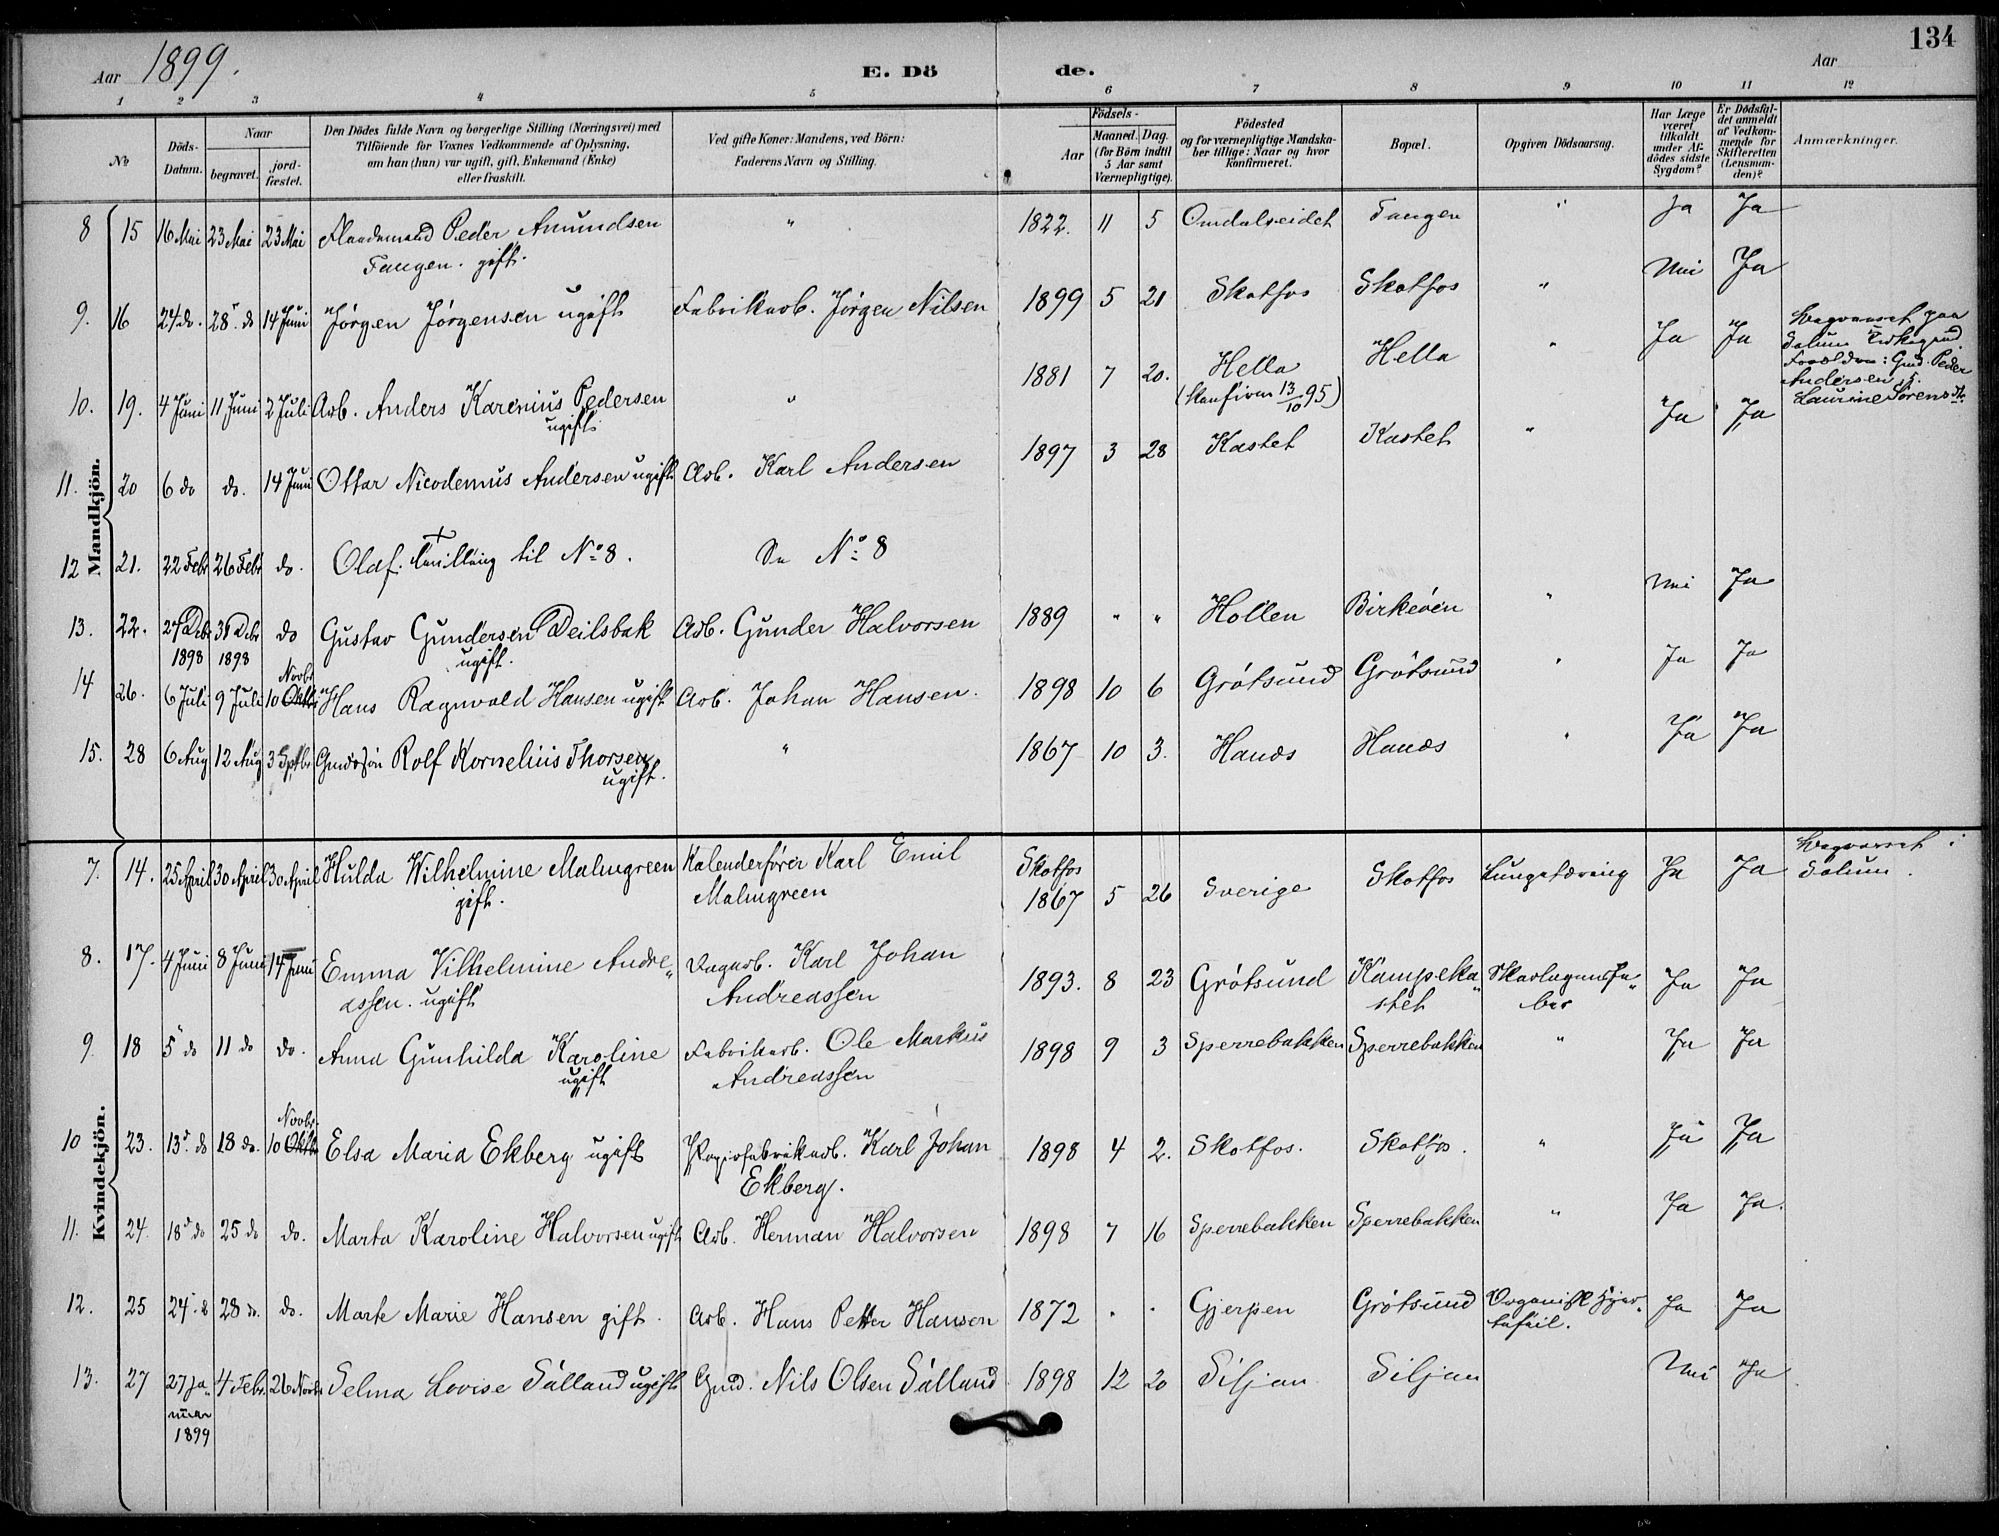 134
Aar 1899. E. Dö de. Aar
1 2 3 4 5 6 7 8 9 10 11 12
No
Döds-Datum.
Naar
begravet.
jord-fæstet.
Den Dödes fulde Navn og borgerlige Stilling (Næringsvei) med
Tilföiende for Voxnes Vedkommende af Oplysning,
om han (hun) var ugift, gift, Enkemand (Enke)
eller fraskilt.
Ved gifte Koner: Mandens, ved Börn:
Faderens Navn og Stilling.
Födsels-
Aar
Maaned. Dag.
(for Börn indtil
5 Aar samt
Værnepligtige).
Födested
og for værnepligtige Mandska-
ber tillige: Naar og hvor
konfirmeret.
Bopæl.
Opgiven Dödsaarsag.
Har Læge
været
tilkaldt
under Af-
dödes sidste
Sygdom?
Er Dödsfal-
det anmeldt
af Vedkom-
mende for
Skifteretten
(Lensman-
den)?
Anmærkninger.
Mandkjön.
8 15 16 Mai 23 Mai 23 Mai Peder Amundsen " 1822. 11 5 Omdalseidet Tangen " Ja Ja
Tangen. gift.
9. 16 24 do. 28. do 14 Juni Jörgen Jörgensen ugift Fabrikarb. Jörgen Nilsen 1899 5 21 Skotfos Skotfos " Nei Ja
10. 19. 4 Juni 11 Juni 2 Juli Arb. Anders Karenius Pedersen " 1881 7 20. Hella Hella " Ja Ja
ugift
(Konfirm 13/10 95)
Begravet paa
Solum Kirkegaard.
Forældre: Gmd. Peder
Andersen &
Laurine Sörensdtr.
11. 20 6 do do. 14 Juni Ottar Nicodemus Andersen ugift Arb. Karl Andersen 1897 3 28 Kastet Kastet " Ja Ja
12 21. 22 Febr 26 Febr do. Olaf. Tvilling til No 8. Se No 8
13. 22. 27 Debr 31 Debr do Gustav Gundersen Deilsbak Arb. Gunder Halvorsen 1889 " " Hollen Birkeven " Nei Ja
1898 1898 ugift.
14 26. 6 Juli 9 Juli 10 Oktbr Novbr Hans Ragnvald Hansen ugift Arb. Johan Hansen. 1898 10 6 Grötsund Grötsund " Ja Ja
15. 28 6 Aug 12 Aug 3 Septbr Gmdssön Rolf Kornelius Thorsen " 1867 10 3. Hanes Hanes " Ja Ja
ugift.
Kvindekjön.
7. 14. 25 April 30 April 30 April Hulda Wilhelmine Malmgreen Kalenderförer Karl Emil Skotfos
gift. Malmgreen 1867 5 26 Sverige Skotfos Lungetæring Ja Ja Begravet i
Solum.
8. 17. 4 Juni 8 Juni 14 Juni Emma Vilhelmine Andre- Dagarb. Karl Johan 1893. 8 23 Grötsund Kampeka- Skarlagensfe- Ja Ja
assen. ugift Andreassen stet ber
9. 18 5 do 11 do do. Anna Gunhilda Karoline Fabrikarb. Ole Markus 1898 9 3 Sperrebakken Sperrebakken " Ja Ja
ugift Andreassen
10 23. 13. do 18 do. 10 Oktbr Novbr. Elsa Maria Ekberg ugift Papirfabrikarb. Karl Johan 1898 4 2. Skotfos. Skotfos. " Ja Ja
Ekberg.
11. 24. 18 do 25 do do. Marta Karoline Halvorsen ugift Arb. Herman Halvorsen 1898 7 16 Sperrebakken Sperrebakken " Ja Ja.
12. 25 24 do 28 do. do. Marte Marie Hansen gift. Arb. Hans Petter Hansen 1872 " " Gjerpen Grötsund Organisk Hjer- Ja Ja
tefeil.
13. 27 27 Ja- 4 Febr. 26 Novbr Selma Lovise Sälland ugift Gmd. Nils Olsen Sälland 1898 12 20 Siljan Siljan Nei Ja
nuar
1899